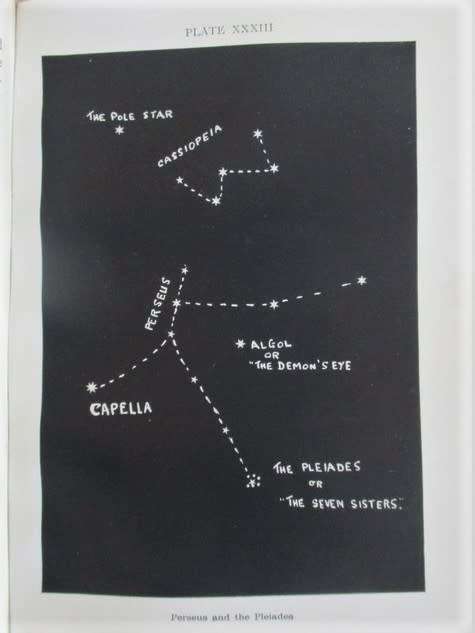 PLATE XXXIII
THE POLE STAR
CASSIOPEIA
PERSEUS
ALGOL
OR
"THE DEMON'S EYE
CAPELLA
THE PLEIADES
OR
"THE SEVEN SISTERS."
Perseus and the Pleiades